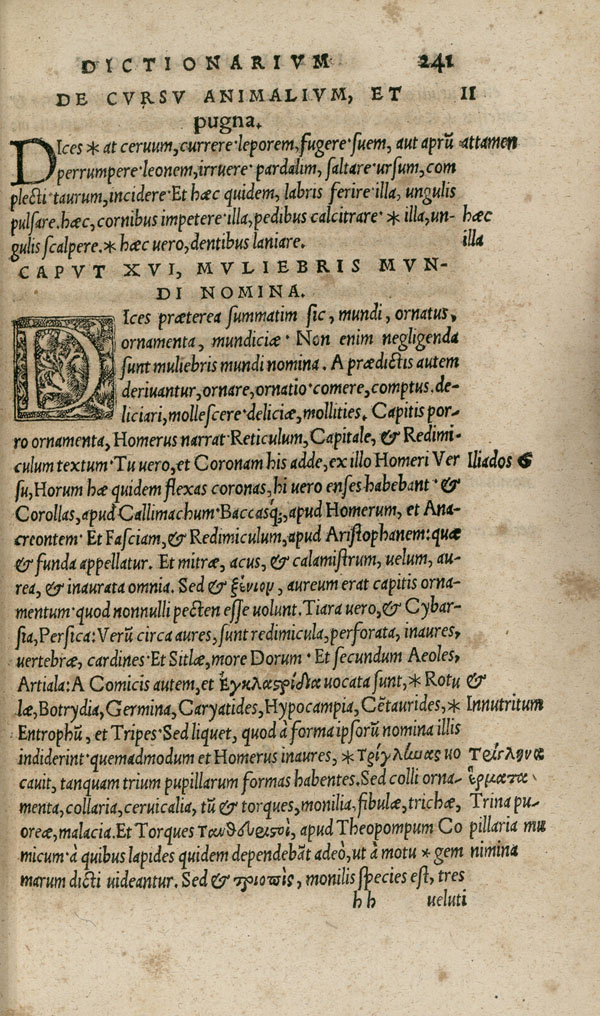 DICTIONARIVM 241
DE CVRSV ANIMALIVM, ET II
pugna.
DIces * at ceruum, currere leporem, fugere suem, aut aprũ attamen
perrumpere leonem, irruere pardalim, saltare ursum, com
plecti taurum, incidere Et hæc quidem, labris ferire illa, ungulis
pulsare. hæc, cornibus impetere illa, pedibus calcitrare * illa, un- hæc
gulis scalpere. * hæc uero, dentibus laniare. illa
CAPVT XVI, MVLIEBRIS MVN-
DI NOMINA.
DIces præterea summatim sic, mundi, ornatus,
ornamenta, mundiciæ Non enim negligenda
sunt muliebris mundi nomina. A prædictis autem
deriuantur, ornare, ornatio comere, comptus. de-
liciari, mollescere deliciæ, mollities. Capitis por-
ro ornamenta, Homerus narrat Reticulum, Capitale, & Redimi-
culum textum Tu uero, et Coronam his adde, ex illo Homeri Ver Iliados 6
su, Horum hæ quidem flexas coronas, hi uero enses habebant &
Corollas, apud Callimachum Baccasq́;, apud Homerum, et Ana-
creontem Et Fasciam, & Redimiculum, apud Aristophanem: quæ
& funda appellatur. Et mitræ, acus, & calamistrum, uelum, au-
rea, & inaurata omnia. Sed & ξένιον, aureum erat capitis orna-
mentum quod nonnulli pecten esse uolunt. Tiara uero, & Cybar-
sia, Persica: Verũ circa aures, sunt redimicula, perforata, inaures,
uertebræ, cardines Et Sitlæ, more Dorum Et secundum Aeoles,
Artiala: A Comicis autem, et Ἐγκλαστρίδια uocata sunt, * Rotu &
læ, Botrydia, Germina, Caryatides, Hypocampia, Cẽtaurides, * Innutritum
Entrophũ, et Tripes Sed liquet, quod à forma ipsorũ nomina illis
indiderint quemadmodum et Homerus inaures, * τρίγλωας uo τρίγληνα
cauit, tanquam trium pupillarum formas habentes. Sed colli orna- ἕρματα
menta, collaria, ceruicalia, tũ & torques, monilia, fibulæ, trichæ, Trina pu-
oreæ, malacia. Et Torques apud Theopompum Co pillaria mu
micum à quibus lapides quidem dependebãt adeò, ut à motu * gem nimina
marum dicti uideantur. Sed & τριοπὶς, monilis species est, tres
h h ueluti